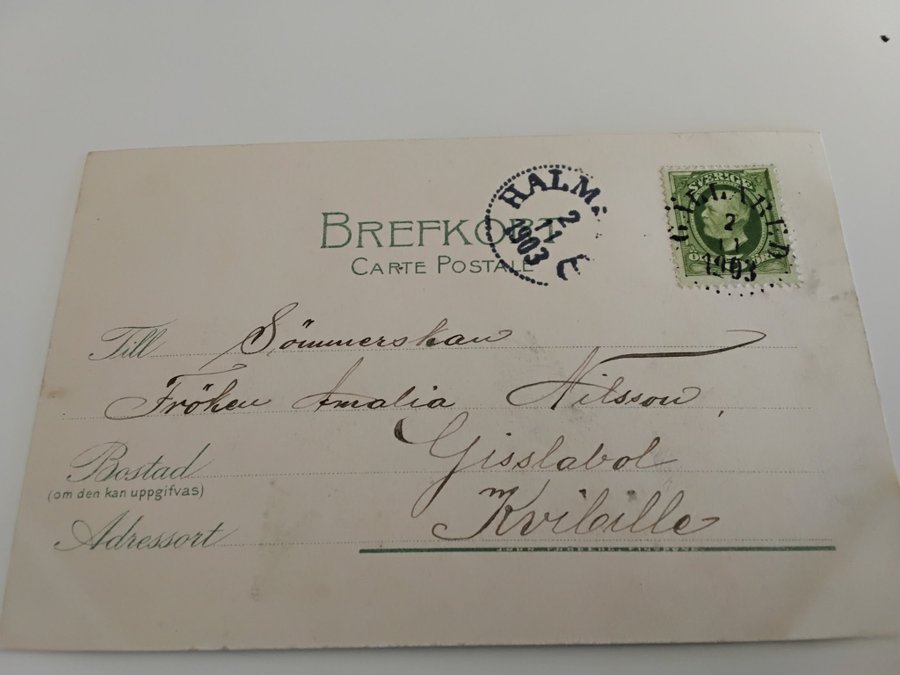 BREFKORT
CARTE POSTALE
HALM
2
11
1903
SVERIGE
2
11
1903
Till Sömmerskan
Fröken Amalia Nilsson,
Bostad Gisslabol
(om den kan uppgifvas)
Adressort Kvibille